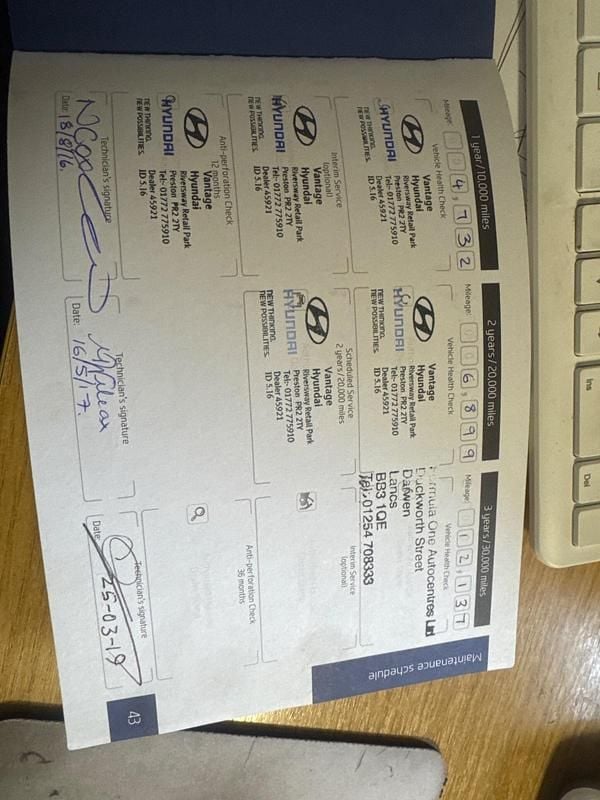 Maintenance schedule
1 year/10,000 miles
Mileage: 004,732
Vehicle Health Check
HYUNDAI
NEW THINKING.
NEW POSSIBILITIES.
Vantage
Hyundai
Riversway Retail Park
Preston PR2 2TY
Tel:- 01772 775910
Dealer 45921
ID 5.16
Interim Service
(optional)
HYUNDAI
NEW THINKING.
NEW POSSIBILITIES.
Vantage
Hyundai
Riversway Retail Park
Preston PR2 2TY
Tel:- 01772 775910
Dealer 45921
ID 5.16
Anti-perforation Check
12 months
HYUNDAI
NEW THINKING.
NEW POSSIBILITIES.
Vantage
Hyundai
Riversway Retail Park
Preston PR2 2TY
Tel:- 01772 775910
Dealer 45921
ID 5.16
Technician's signature
Date: 18/8/16.
2 years/20,000 miles
Mileage: 006,899
Vehicle Health Check
HYUNDAI
NEW THINKING.
NEW POSSIBILITIES.
Vantage
Hyundai
Riversway Retail Park
Preston PR2 2TY
Tel:- 01772 775910
Dealer 45921
ID 5.16
Scheduled Service
2 years/20,000 miles
HYUNDAI
NEW THINKING.
NEW POSSIBILITIES.
Vantage
Hyundai
Riversway Retail Park
Preston PR2 2TY
Tel:- 01772 775910
Dealer 45921
ID 5.16
Technician's signature
Date: 16/5/17.
3 years/30,000 miles
Mileage: 012,137
Vehicle Health Check
Formula One Autocentres Ltd
Duckworth Street
Darwen
Lancs
BB3 1QE
Tel: 01254 708333
Interim Service
(optional)
Anti-perforation Check
36 months
Technician's signature
Date: 25-03-19
43
Ins
Del